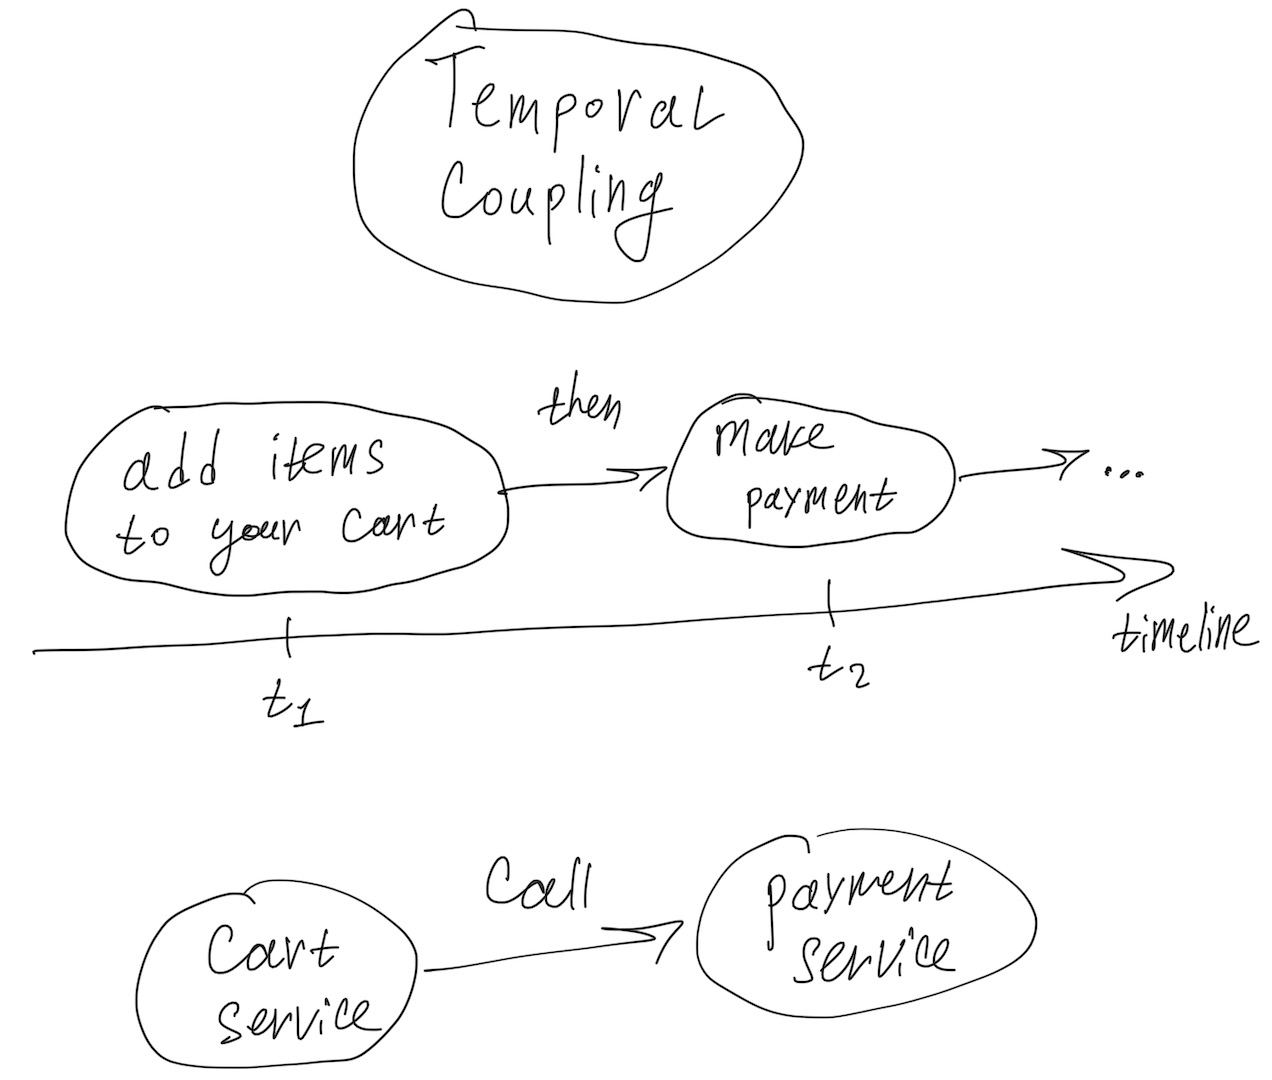 Temporal
Coupling
then
add items
to your cart
make
payment
...
timeline
t1
t2
Call
Cart
service
payment
service